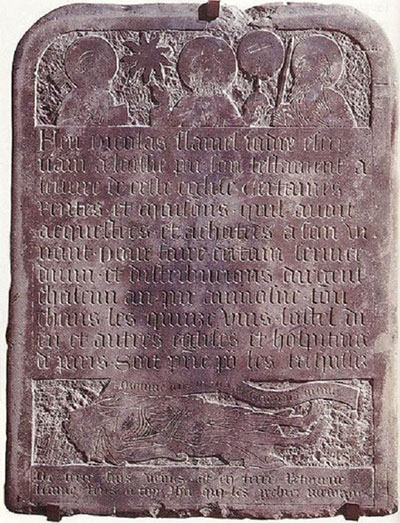 Feu nicolas flamel jadis escri
vain a laissie par son testament a
leuvre de ceste eglise certaines
rentes et maisons quil avoit
acquestees et achetees a son vi
vant pour faire certain service
divin et distribucions dargent
chascun an par aumosne tou
chans les quinze vins lostel di
eu et autres eglises et hospitaux
a paris Soit prie po les trespasses
Domine deus in
De terre suis venus et en terre retourne
qui les pechiez